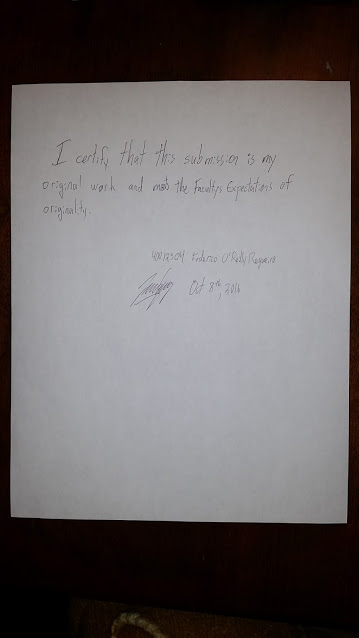 I certify that this submission is my
original work and meets the Faculty's Expectations of
originality.
Federico O'Reilly Regueiro
Oct 8th, 2016